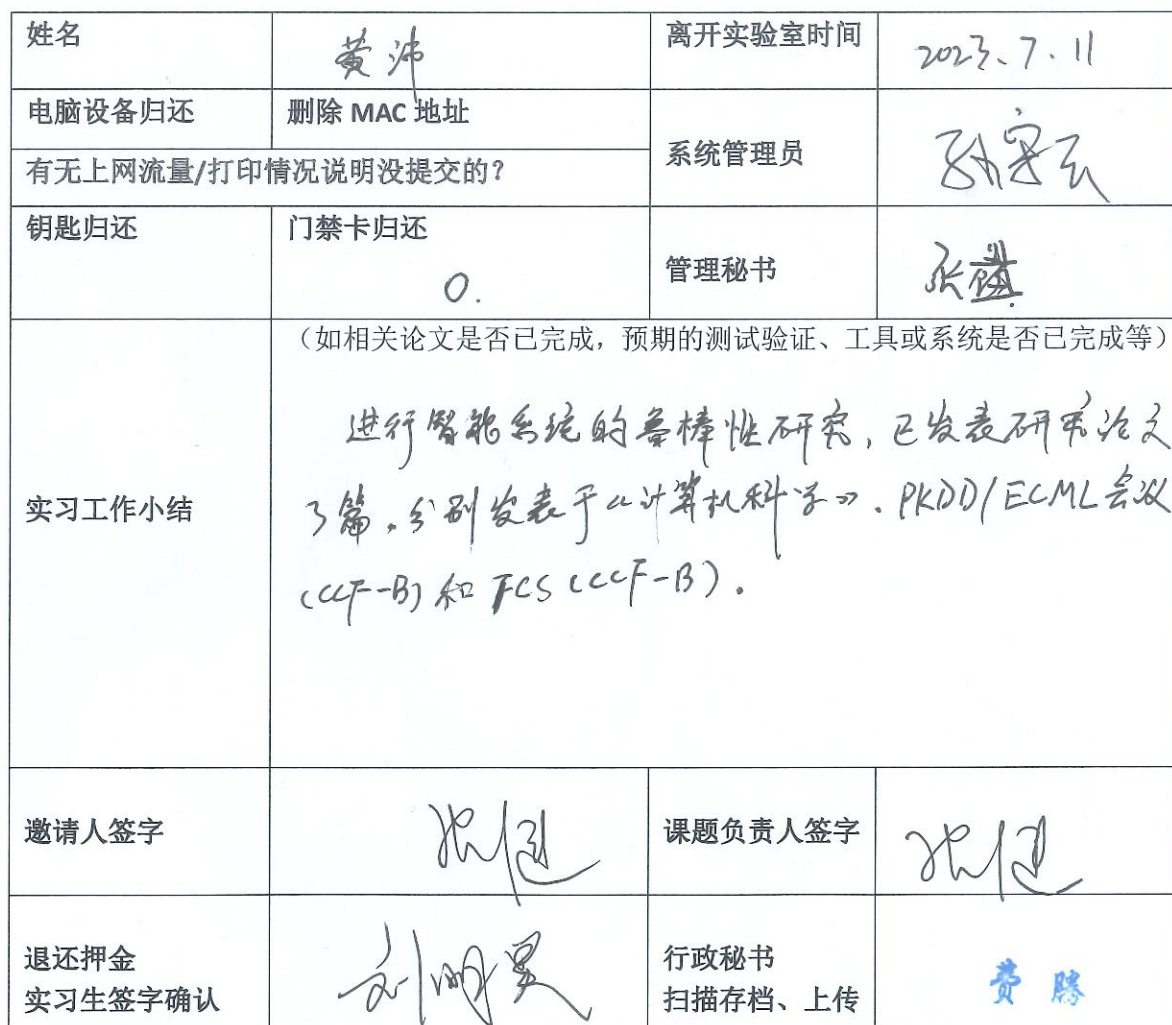 姓名 黄沛 离开实验室时间 2023、7、11
电脑设备归还 删除 MAC 地址
系统管理员
有无上网流量/打印情况说明没提交的?
钥匙归还 门禁卡归还
O. 管理秘书
(如相关论文是否已完成,预期的测试验证、工具或系统是否已完成等)
实习工作小结
进行智能系统的鲁棒性研究,已发表研究论文
3篇。分别发表于《计算机科学》、PKDD/ECML会议
(CCF-B)和 FCS (CCF-B)。
邀请人签字 张健 课题负责人签字 张健
退还押金 行政秘书
实习生签字确认 刘明昊 扫描存档、上传 费腾